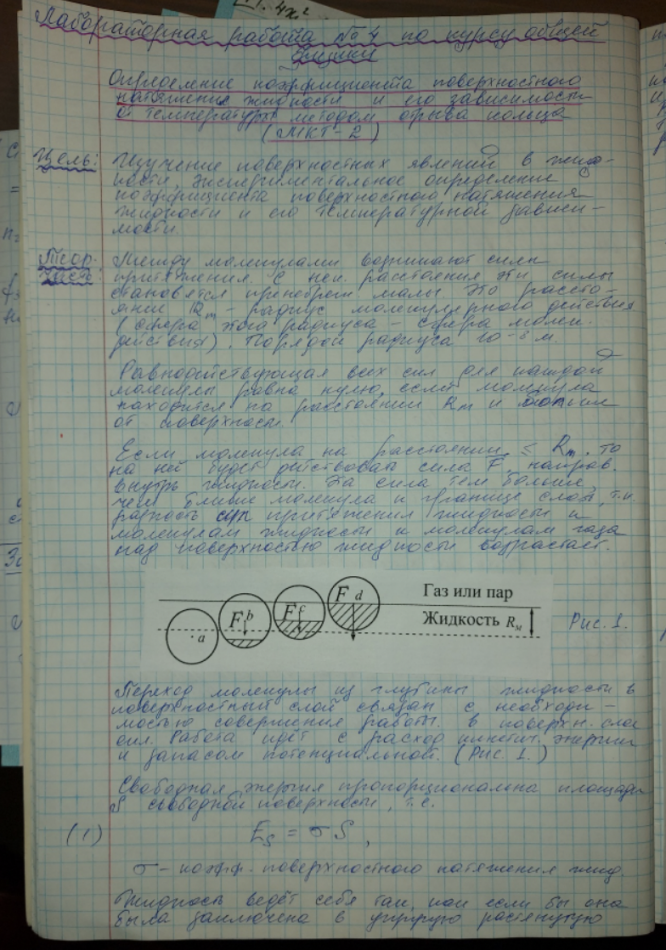 Лабораторная работа №4 по курсу общей
физики
Определение коэффициента поверхностного
натяжения жидкости и его зависимости
от температуры методом отрыва кольца
(МКТ-2)
Цель: Изучение поверхностных явлений в жид-
кости, экспериментальное определение
коэффициента поверхностного натяжения
жидкости и его температурной зависи-
мости.
Теор. Между молекулами возникают силы
часть: притяжения. С нек. расстояния эти силы
становятся пренебреж. малы. Это рассто-
яние Rm - радиус молекулярного действия
(сфера этого радиуса - сфера молек.
действия). Порядок радиуса 10⁻⁸ м.
Равнодействующая всех сил для каждой
молекулы равна нулю, если молекула
находится на расстоянии Rm и больше
от поверхности.
Если молекула на расстоянии ≤ Rm, то
на неё будет действовать сила F, направ.
внутрь жидкости. Эта сила тем больше,
чем ближе молекула к границе слоя, т.к.
разность сил притяжения жидкости к
молекулам жидкости и молекулам газа
над поверхностью жидкости возрастает.
a
F b
F c
F d
Газ или пар
Жидкость Rм
Рис. 1.
Переход молекулы из глубины жидкости в
поверхностный слой связан с необходи-
мостью совершения работы в поверхн. слое
сил. Работа идёт с расход. кинетич. энергии
и запасом потенциальной. (Рис. 1.)
Свободная энергия пропорциональна площади
S свободной поверхности, т.е.
(1) Es = σS,
σ - коэфф. поверхностного натяжения жид.
Жидкость ведёт себя так, как если бы она
была заключена в упругую растянутую